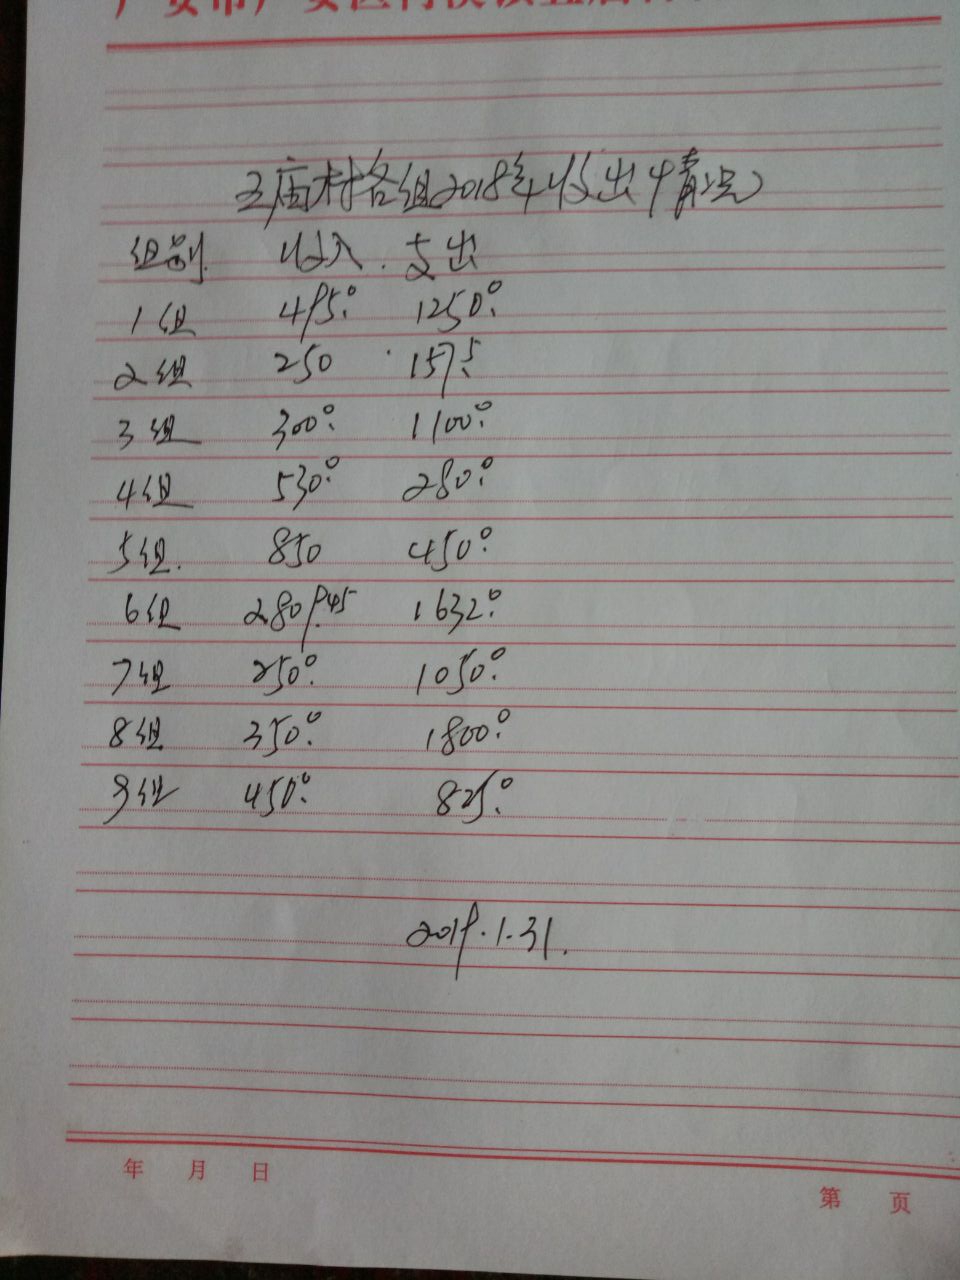 五庙村各组2018年收出情况
组别 收入 支出
1组 495.0 1250.0
2组 250 1575
3组 300.0 1100.0
4组 530.0 280.0
5组. 850 450.0
6组 2809.45 1632.0
7组 250.0 1050.0
8组 350.0 1800.0
9组 450.0 825.0
2019.1.31.
年 月 日
第 页